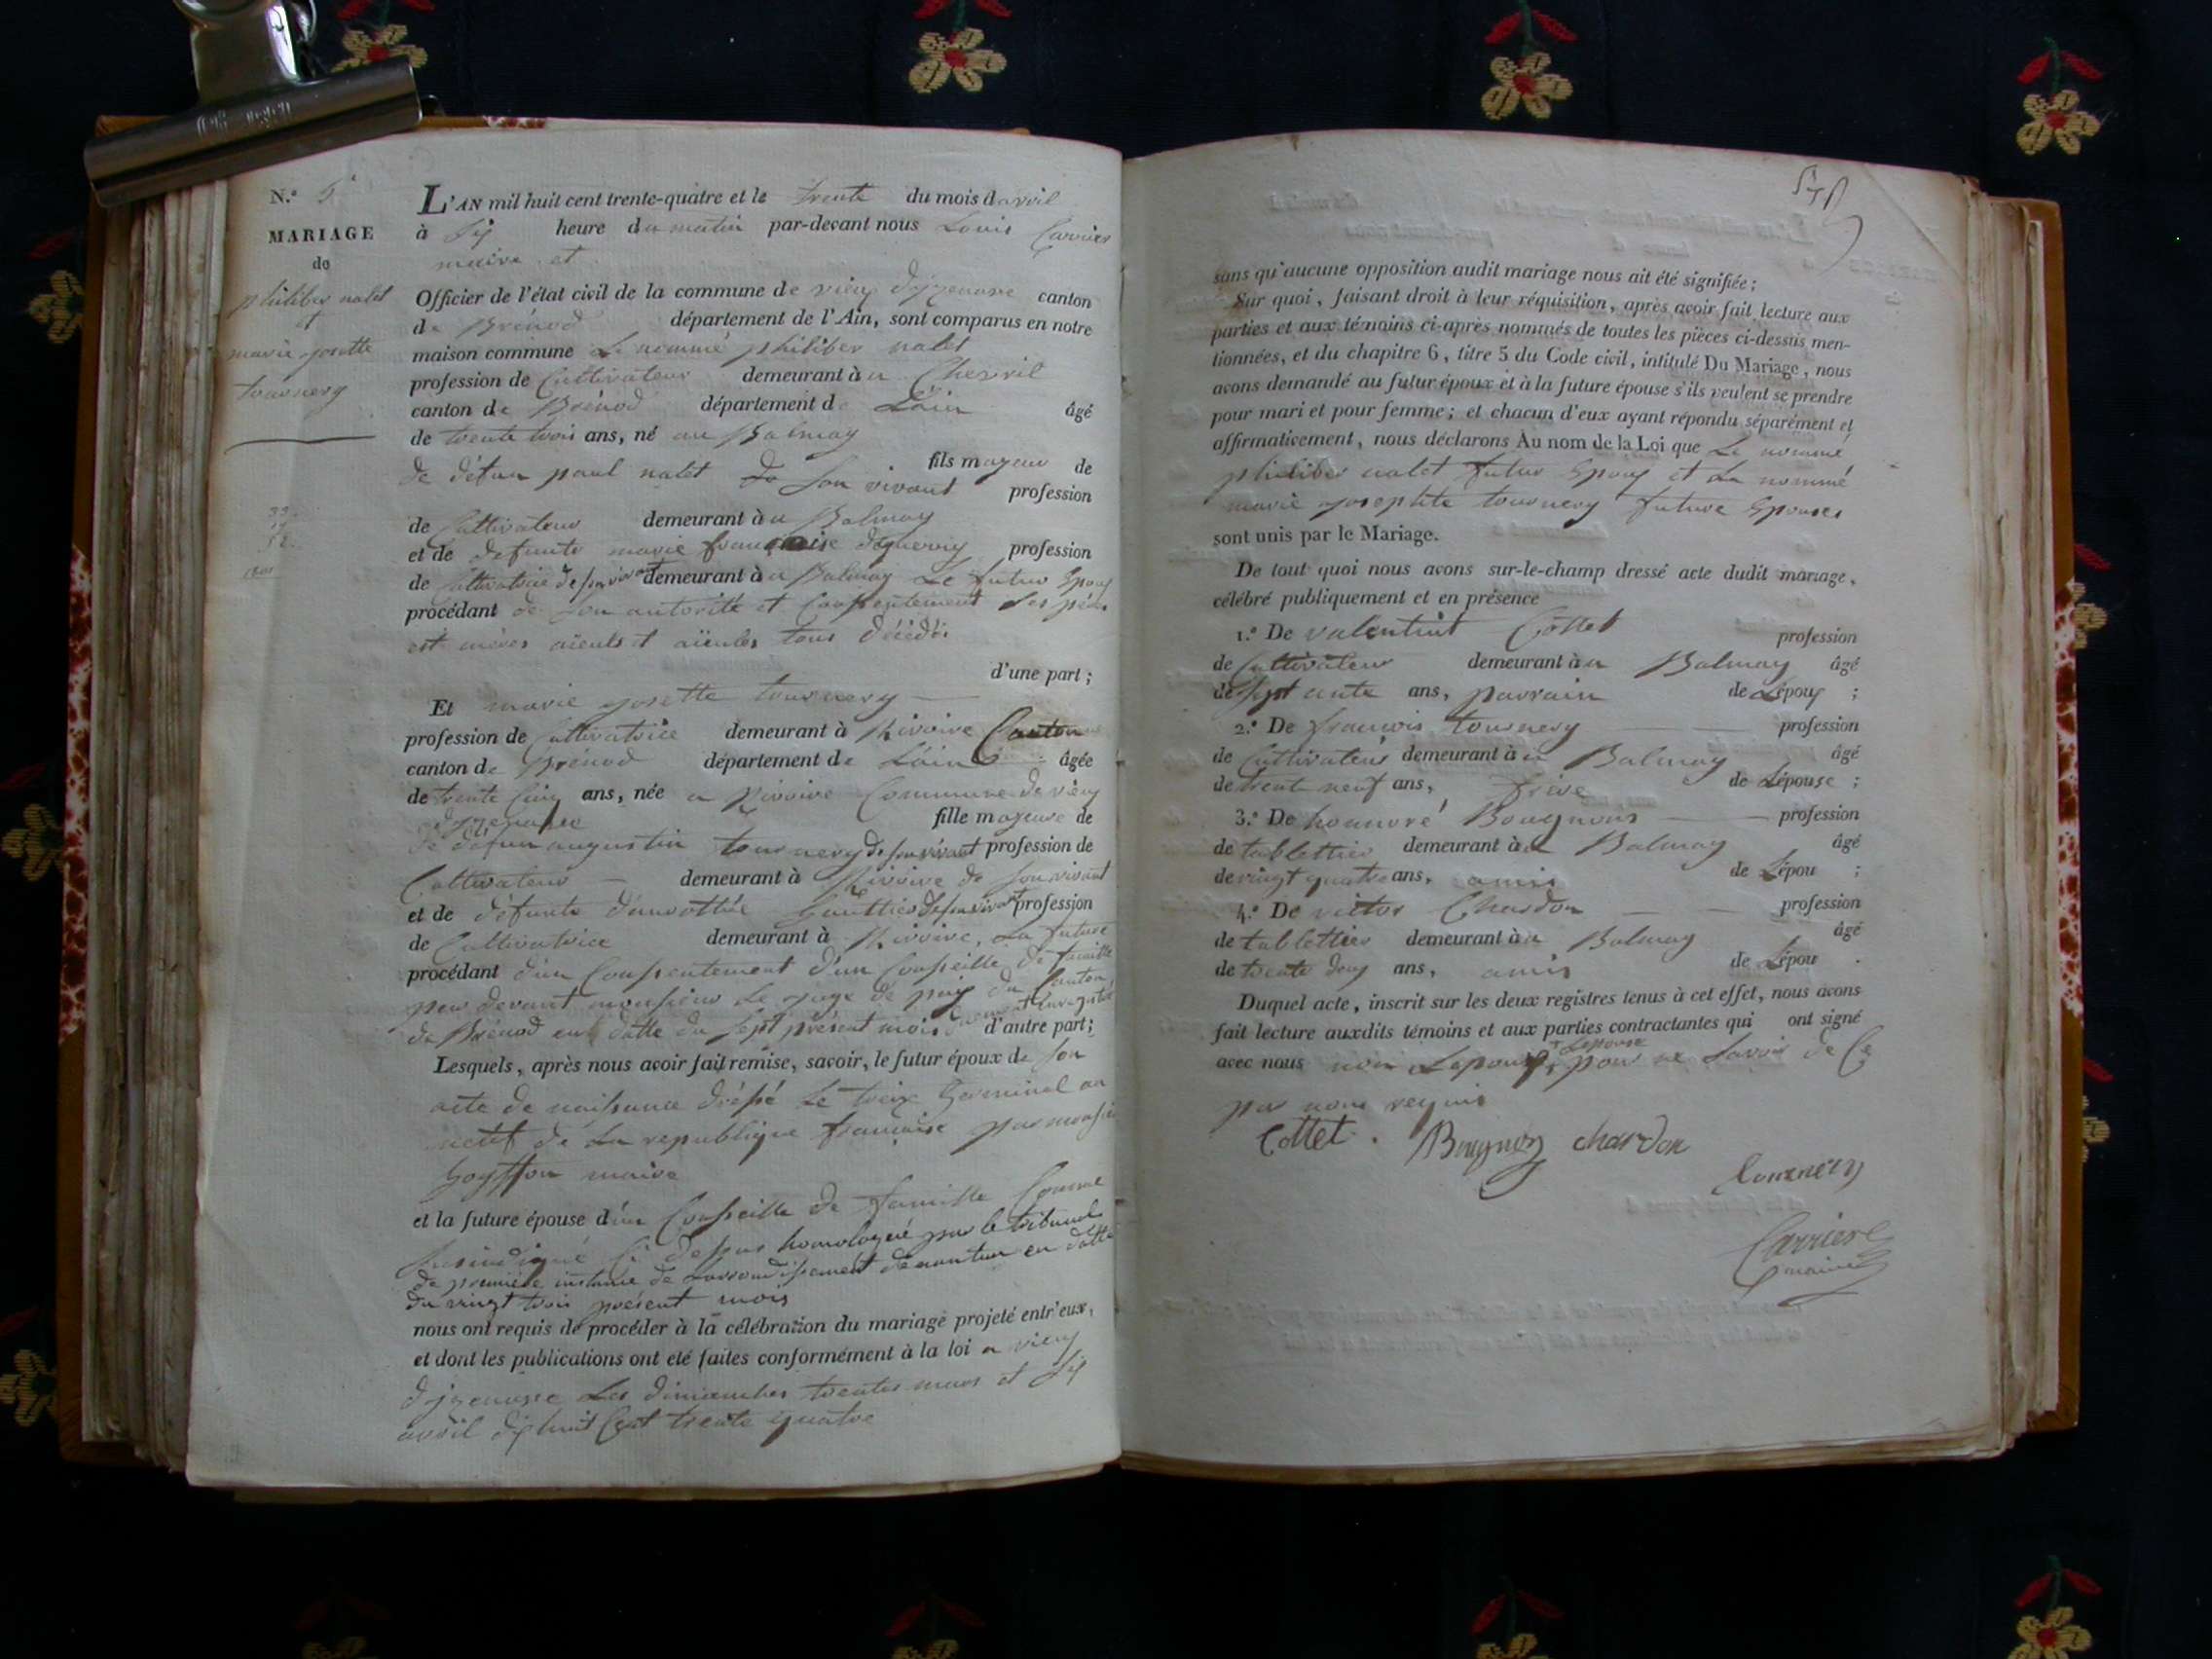 N.º 5
MARIAGE
de
philiber nalet
et
marie josette
tournery
L'AN mil huit cent trente-quatre et le trente du mois davril
à six heure du matin par-devant nous Louis Carrier
maire et
Officier de l'état civil de la commune de vieux d'izenave canton
de Brénod département de l'Ain, sont comparus en notre
maison commune Le nommé philiber nalet
profession de Cultivateur demeurant à a Chevril
canton de Brénod département de Lain âgé
de trente trois ans, né au Balmay
fils majeur de
de défun paul nalet de son vivant profession
de Cultivateur demeurant à u Balmay
et de defunte marie francaise profession
de Cultivatrice de son vivant demeurant à u Balmay Le futur Epoux
procédant de son autorité et Consentement Les pères
est mères aieuls et aïeules tous décédés
d'une part ;
Et marie josette tournery
profession de Cultivatrice demeurant à Rivoire Canton
canton de Brénod département de Lain âgée
de trente Cinq ans, née a Rivoire Commune de vieux
d'izenave fille majeure de
de défun augustin tournery de son vivant profession de
Cultivateur demeurant à Rivoire de son vivant
et de défunte Gauttier de son vivant profession
de Cultivatrice demeurant à Rivoire, La future
procédant d'un Consentement d'un Conseille de famille
par devant monsieur Le juge de paix du Canton
de Brénod en datte du sept présent mois duement enregistré d'autre part ;
Lesquels, après nous avoir fait remise, savoir, le futur époux de son
acte de naissance dréssé Le treize Germinal an
neuf de La republique francaise par monsieur
Goyffon maire
et la future épouse d'un Conseille de famille Comme
Ci dessus homologué par le tribunal
de première instance de Larrondissement de nantua en datte
du vingt trois présent mois
nous ont requis de procéder à la célébration du mariage projeté entr'eux,
et dont les publications ont été faites conformément à la loi a vieux
d'izenave Les dimanches trentes mars et six
avril dix huit Cent trente quatre
sans qu'aucune opposition audit mariage nous ait été signifiée ;
Sur quoi, faisant droit à leur réquisition, après avoir fait lecture aux
parties et aux témoins ci-après nommés de toutes les pièces ci-dessus men-
tionnées, et du chapitre 6, titre 5 du Code civil, intitulé Du Mariage, nous
avons demandé au futur époux et à la future épouse s'ils veulent se prendre
pour mari et pour femme ; et chacun d'eux ayant répondu séparément et
affirmativement, nous déclarons Au nom de la Loi que Le nommé
philiber nalet futur Epoux et La nommé
marie josephte tournery future Epouses
sont unis par le Mariage.
De tout quoi nous avons sur-le-champ dressé acte dudit mariage,
célébré publiquement et en présence
1.º De valentint Cottet profession
de Cultivateur demeurant à u Balmay âgé
de sept ante ans, parrain de Lépoux ;
2.º De francois tournery profession
de Cultivateur demeurant à u Balmay âgé
de trent neuf ans, frère de Lépouse ;
3.º De honnoré Bougnons profession
de tablettier demeurant à u Balmay âgé
de vingt quatre ans, amis de Lépou ;
4.º De victor Chardon profession
de tablettier demeurant à u Balmay âgé
de trente deux ans, amis de Lépou .
Duquel acte, inscrit sur les deux registres tenus à cet effet, nous avons
fait lecture auxdits témoins et aux parties contractantes qui ont signé
avec nous non Lepoux, et Lepouse pour ne savoir de Ce
par nous requis
Cottet. Bougnon chardon
tournery
Carrier
maire